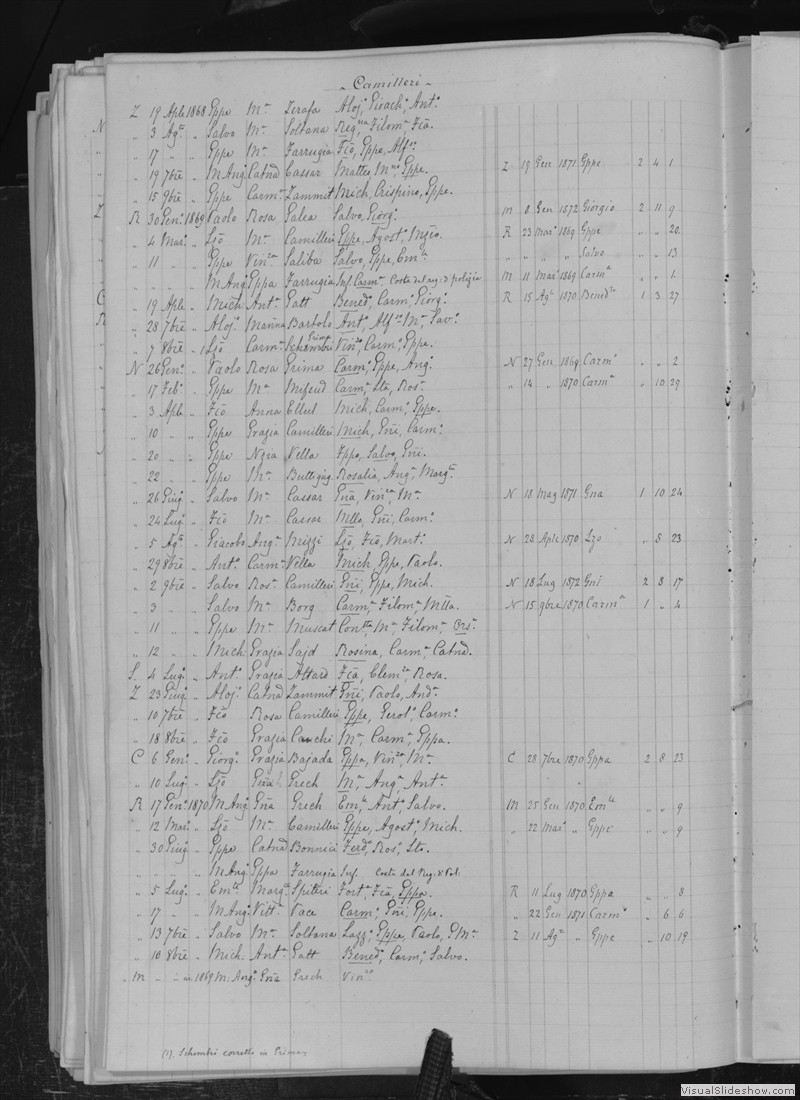 Camilleri
Z 19 Aple 1868 Eppe Ma Zerafa Aloj, Gioach, Anto
N „ 3 Aga „ Salvo Ma Soltana Regna, Filoma, Fca.
„ 17 „ „ Eppe Ma Farrugia Fco, Eppe, Alfso
„ 19 7bre „ M Angi Catna Cassar Matteo, Mno, Eppe. Z 19 Gen 1871 Eppe 2 4 1
„ 15 9bre „ Eppe Carma Zammit Mich, Crispino, Eppe.
Z R 30 Geno 1869 Paolo Rosa Galea Salvo, Giorgo M 8 Gen 1872 Giorgio 2 11 9
„ 4 Maro „ Lzo Ma Camilleri Eppe, Agosto, Mzio. R 23 Maro 1869 Eppe „ „ 20
„ 11 „ „ Eppe Vinza Saliba Salvo, Eppe, Emle „ „ „ „ Salvo „ „ 13
„ „ „ M Angi Eppa Farrugia Inf Carma Costa dal reg. d polizia M 11 Maro 1869 Carma „ „ 1
C „ 19 Aple „ Mich Anta Gatt Bened, Carmo, Giorgo R 15 Aga 1870 Bened 1 3 27
R „ 28 7bre „ Aloj. Manna Bartolo Anto, Alfso, Ma, Savo
„ 7 8bre „ 1 Lzo Carma Schembri Prima Vinzo, Carmo, Eppe.
N 26 Geno „ Paolo Rosa Grima Carmo, Eppe, Ango N 27 Gen 1869 Carmo „ „ 2
„ 17 Febo „ Eppe Ma Mifsud Carma, Sta, Roso „ 14 „ 1870 Carma „ 10 29
„ 3 Aple „ Fco Anna Ellul Mich, Carmo, Eppe.
„ 10 „ „ Eppe Grazia Camilleri Mich, Gni, Carmo
„ 20 „ „ Eppe Nzra Vella Eppe, Salvo, Gni.
„ 22 „ „ Eppe Ma Buttigieg Rosalia, Anga, Margta
„ 26 Giugo „ Salvo Ma Cassar Gna, Vinza, Ma N 18 Mag 1871 Gna 1 10 24
„ 24 Lugo „ Fco Ma Cassar Mlla, Gni, Carmo
„ 5 Aga „ Giacobo Anga Mizzi Lzo, Fco, Marto N 28 Aple 1870 Lzo „ 8 23
„ 29 8bre „ Anto Carma Vella Mich, Eppe, Paolo.
„ 2 9bre „ Salvo Rosa Camilleri Gni, Eppe, Mich. N 18 Lug 1872 Gni 2 8 17
„ 3 „ Salvo Ma Borg Carma, Filoma, Mlla. N 15 9bre 1870 Carma 1 „ 4
„ 11 „ „ Eppe Ma Muscat Contta, Ma, Filoma, Orsa
„ 12 „ „ Mich Grazia Sajd Rosina, Carma, Catna.
S. 4 Lugo „ Anto Grazia Attard Fca, Clemza, Rosa.
Z 23 Giugo „ Aloj. Catna Zammit Gni, Paolo, Anda
„ 10 7bre „ Fco Rosa Camilleri Eppe, Gerolo, Carmo
„ 18 8bre „ Fco Grazia Cauchi Ma, Carma, Eppa.
C 6 Geno „ Giorgo Grazia Bajada Eppa, Vinza, Ma C 28 7bre 1870 Eppa 2 8 23
„ 10 Lugo „ Lzo Gna Grech Ma, Anga, Anta
R 17 Geno 1870 M Angi Gna Grech Emla, Anto, Salvo. M 25 Gen 1870 Emla „ „ 9
„ 12 Maro „ Lzo Ma Camilleri Eppe, Agosto, Mich. „ 22 Maro „ Eppe „ „ 9
„ 30 Giugo „ Eppe Catna Bonnici Ferdo, Roso, Sto.
„ „ M Angi Eppa Farrugia Inf. Costa dal Reg. d Poli
„ 5 Lugo „ Emle Margta Spiteri Forta, Fca, Eppa. R 11 Lug 1870 Eppa „ „ 8
„ 17 „ „ M Angi Vitta Pace Carmo, Gni, Eppe. „ 22 Gen 1871 Carmo „ 6 6
„ 13 7bre „ Salvo Ma Soltana Lazzo, Eppe, Paolo, Ma Z 11 Aga „ Eppe „ 10 19
„ 10 8bre „ Mich Anta Gatt Bened, Carmo, Salvo.
„ M „ „ 1869 M. Ango Gna Grech Vinzo
(1). Schembri corretto in Prima
VisualSlideshow.com